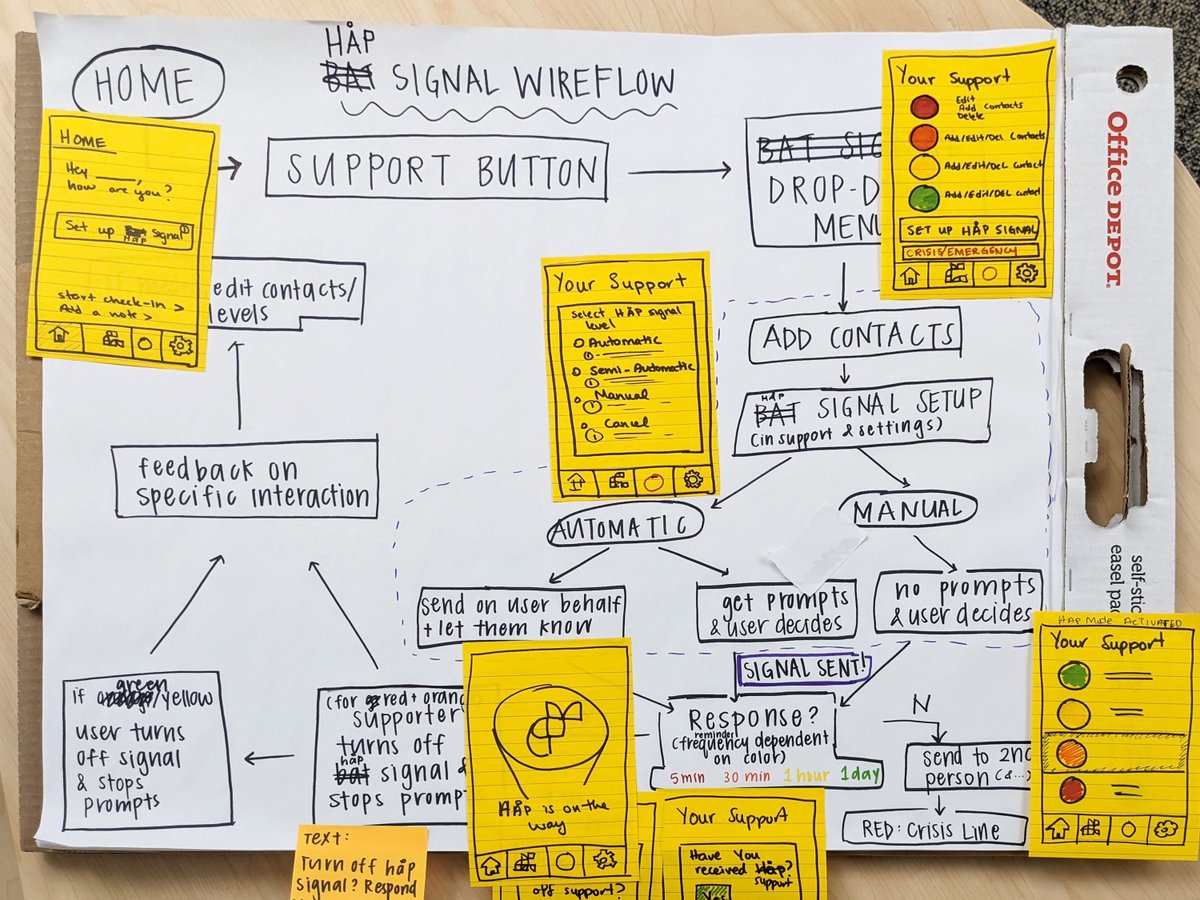 HOME
HÅP
BAT SIGNAL WIREFLOW
HOME
Hey ____,
how are you?
Set up Håp Signal
start check-in >
Add a note >
SUPPORT BUTTON
BAT SIG
DROP-D
MENU
Your Support
Edit
Add Contacts
Delete
Add/Edit/Del Contacts
Add/Edit/DEL Contact
Add/Edit/DEL Contact
SET UP HÅP SIGNAL
CRISIS/EMERGENCY
Office DEPOT
self-stic
easel pa
edit contacts/
levels
Your Support
Select HÅP signal
level
Automatic
Semi-Automatic
Manual
Cancel
ADD CONTACTS
HÅP
BAT SIGNAL SETUP
(in support & settings)
feedback on
specific interaction
AUTOMATIC
MANUAL
send on user behalf
+ let them know
get prompts
& user decides
no prompts
& user decides
SIGNAL SENT!
if green/yellow
user turns
off signal
& stops
prompts
(for red + orang
supporter
turns off
håp
bat signal &
stops prompt
HÅP is on the
way
Response?
reminder
(frequency dependent
on color)
5min 30 min 1 hour 1day
N
send to 2nd
person (&...)
RED: Crisis Line
HÅP MODE ACTIVATED
Your Support
TEXT:
Turn off håp
signal? Respond
off support?
Your Support
Have You
received Håp?
support
Yes